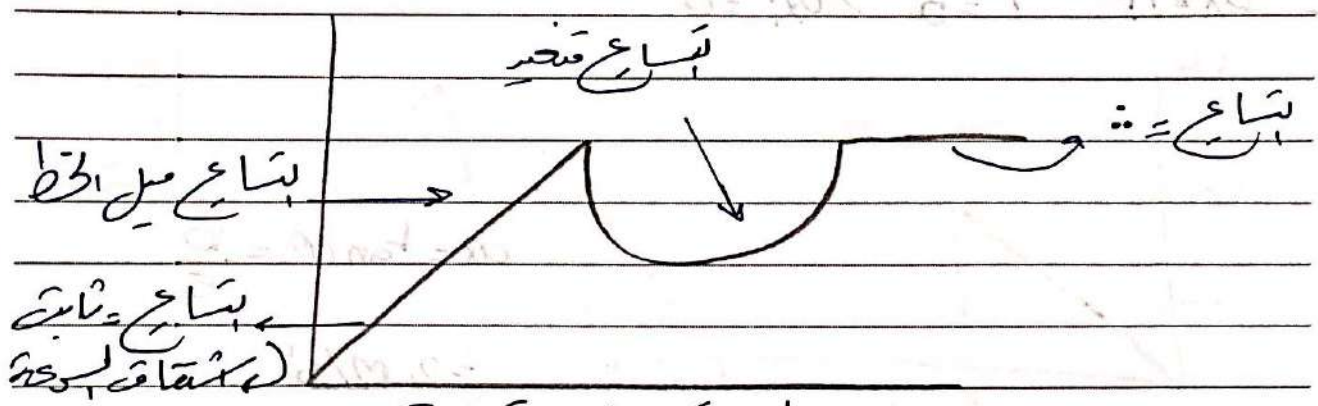 التسارع متغير
التسارع =
التسارع ميل الخط
التسارع = ثابت
اشتقاق السرعة